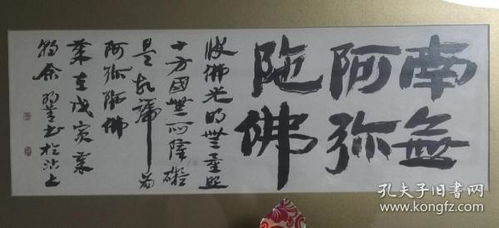 南無
阿弥
陀佛
彼佛光明無量照
十方國無所障礙
是故號為
阿弥陀佛
歲在戊寅
書於沙上
孔夫子旧书网
www.kongfz.com